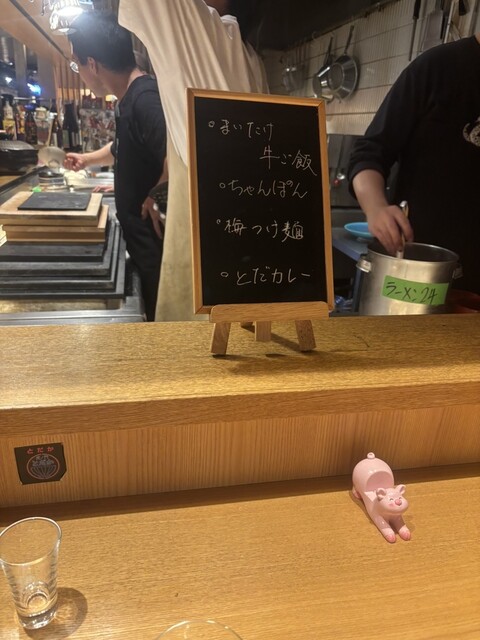 ○まいたけ
牛ご飯
○ちゃんぽん
○梅つけ麺
○とだカレー
ラーメン24
とだか